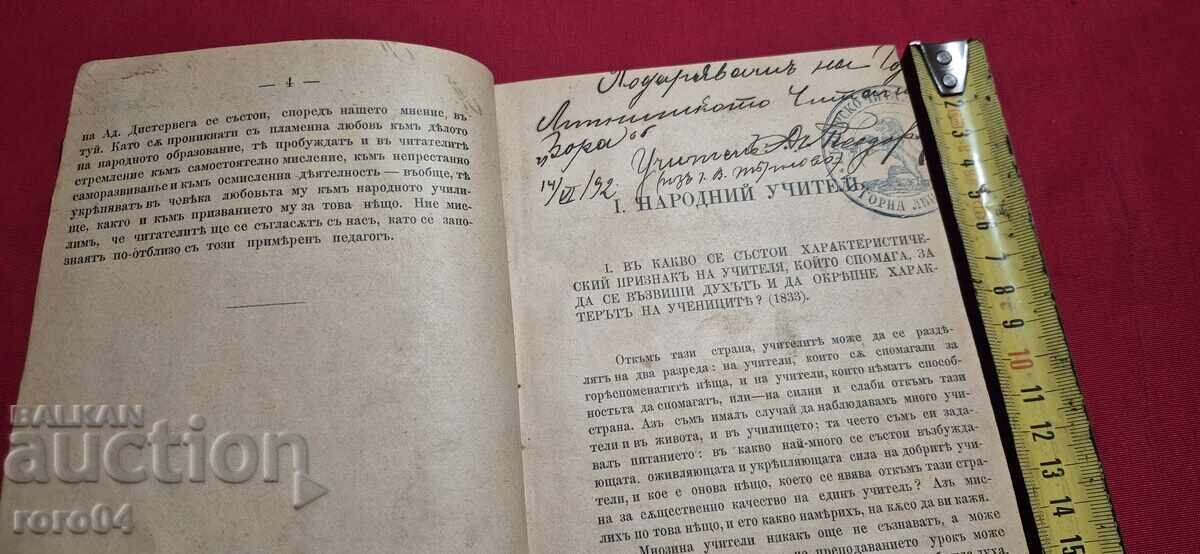 — 4 —
на Ад. Дистервега се състои, споредъ нашето мнение, въ
туй. Като сѫ проникнати съ пламенна любовь къмъ дѣлото
на народното образование, тѣ пробуждатъ и въ читателитѣ
стремление къмъ самостоятелно мисление, къмъ непрестанно
саморазвиванье и къмъ осмисленна дѣятелность — въобще, тѣ
укрѣпяватъ въ човѣка любовьта му къмъ народното учили-
ще, както и къмъ призванието му за това нѣщо. Ние мис-
лимъ, че читателитѣ ще се съгласѫтъ съ насъ, като се запо-
знаятъ по-отблизо съ този примѣренъ педагогъ.
Подарявамъ на
Читали
„Зора“ отъ
Учитель
14/VI/92.
ГОРНА
I. НАРОДНИЙ УЧИТЕЛЬ
1. ВЪ КАКВО СЕ СЪСТОИ ХАРАКТЕРИСТИЧЕ-
СКИЙ ПРИЗНАКЪ НА УЧИТЕЛЯ, КОЙТО СПОМАГА, ЗА
ДА СЕ ВЪЗВИШИ ДУХЪТЪ И ДА ОКРѢПНЕ ХАРАК-
ТЕРЪТЪ НА УЧЕНИЦИТѢ? (1833).
Откъмъ тази страна, учителитѣ може да се раздѣ-
лятъ на два разреда: на учители, които сѫ спомагали за
гореспоменатитѣ нѣща, и на учители, които нѣматъ способ-
ностьта да спомагатъ, или—на силни и слаби откъмъ тази
страна. Азъ съмъ ималъ случай да наблюдавамъ много учи-
тели и въ живота, и въ училището; та често съмъ си зада-
валъ питанието: въ какво най-много се състои възбужда-
ющата, оживляющата и укрѣпляющата сила на добритѣ учи-
тели, и кое е онова нѣщо, което се явява откъмъ тази стра-
на за сѫществено качество на единъ учитель? Азъ мис-
лихъ по това нѣщо, и ето какво намѣрихъ, на кѫсо да ви кажя.
Мнозина учители никакъ още не съзнаватъ, а може
преподаванието урокъ може
духа,
2
3
4
5
6
7
8
9
10
11
12
13
14
15
BALKAN
auction
roro04